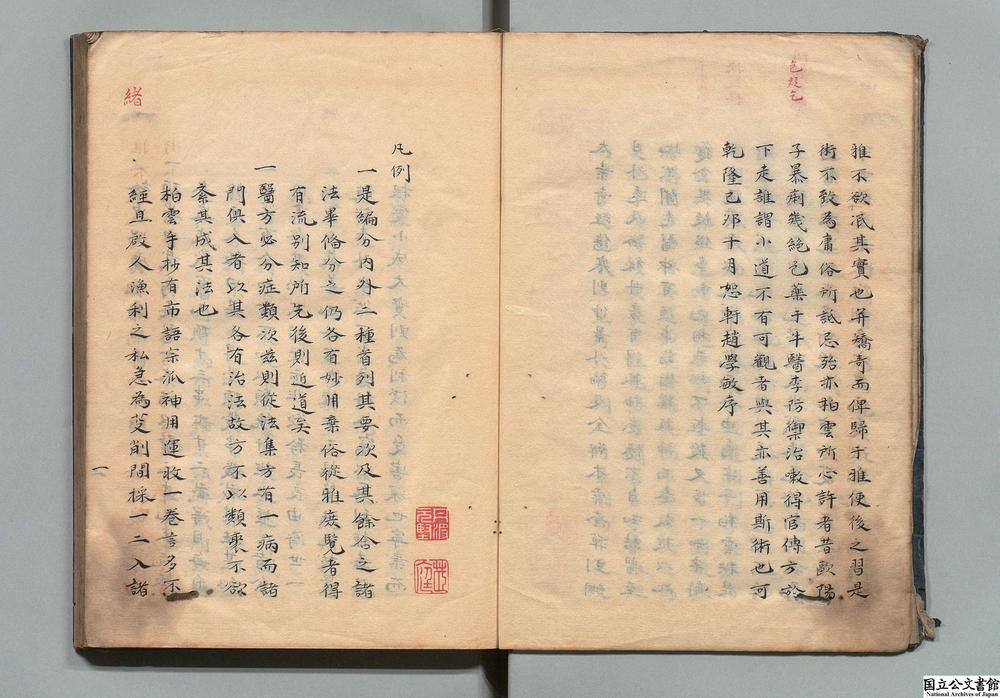 雅不欲泯其實也并矯奇而俾歸于雅使後之習是
術不致為庸俗所詆忌殆亦柏雲所心許者昔歐陽
子暴痢幾絕乞藥于牛醫李防禦治嗽得官傳方於
下走誰謂小道不有可觀者與其亦善用斯術也可
乾隆己卯十月恕軒趙學敏序
乞挍乞
緒
凡例
一是編分內外二種首列其要次及其餘合之諸
法畢備分之仍各有妙用棄俗從雅庶覽者得
有流別知所先後則近道矣
一醫方必分症類次茲則從法集方有一病而諸
門俱入者以其各有治法故方不以類聚不欲
紊其成其法也
一柏雲手抄有市語宗派神用運收一卷言多不
經且啟人漁利之私急為芟削間採一二入諸
一
国立公文書館
National Archives of Japan